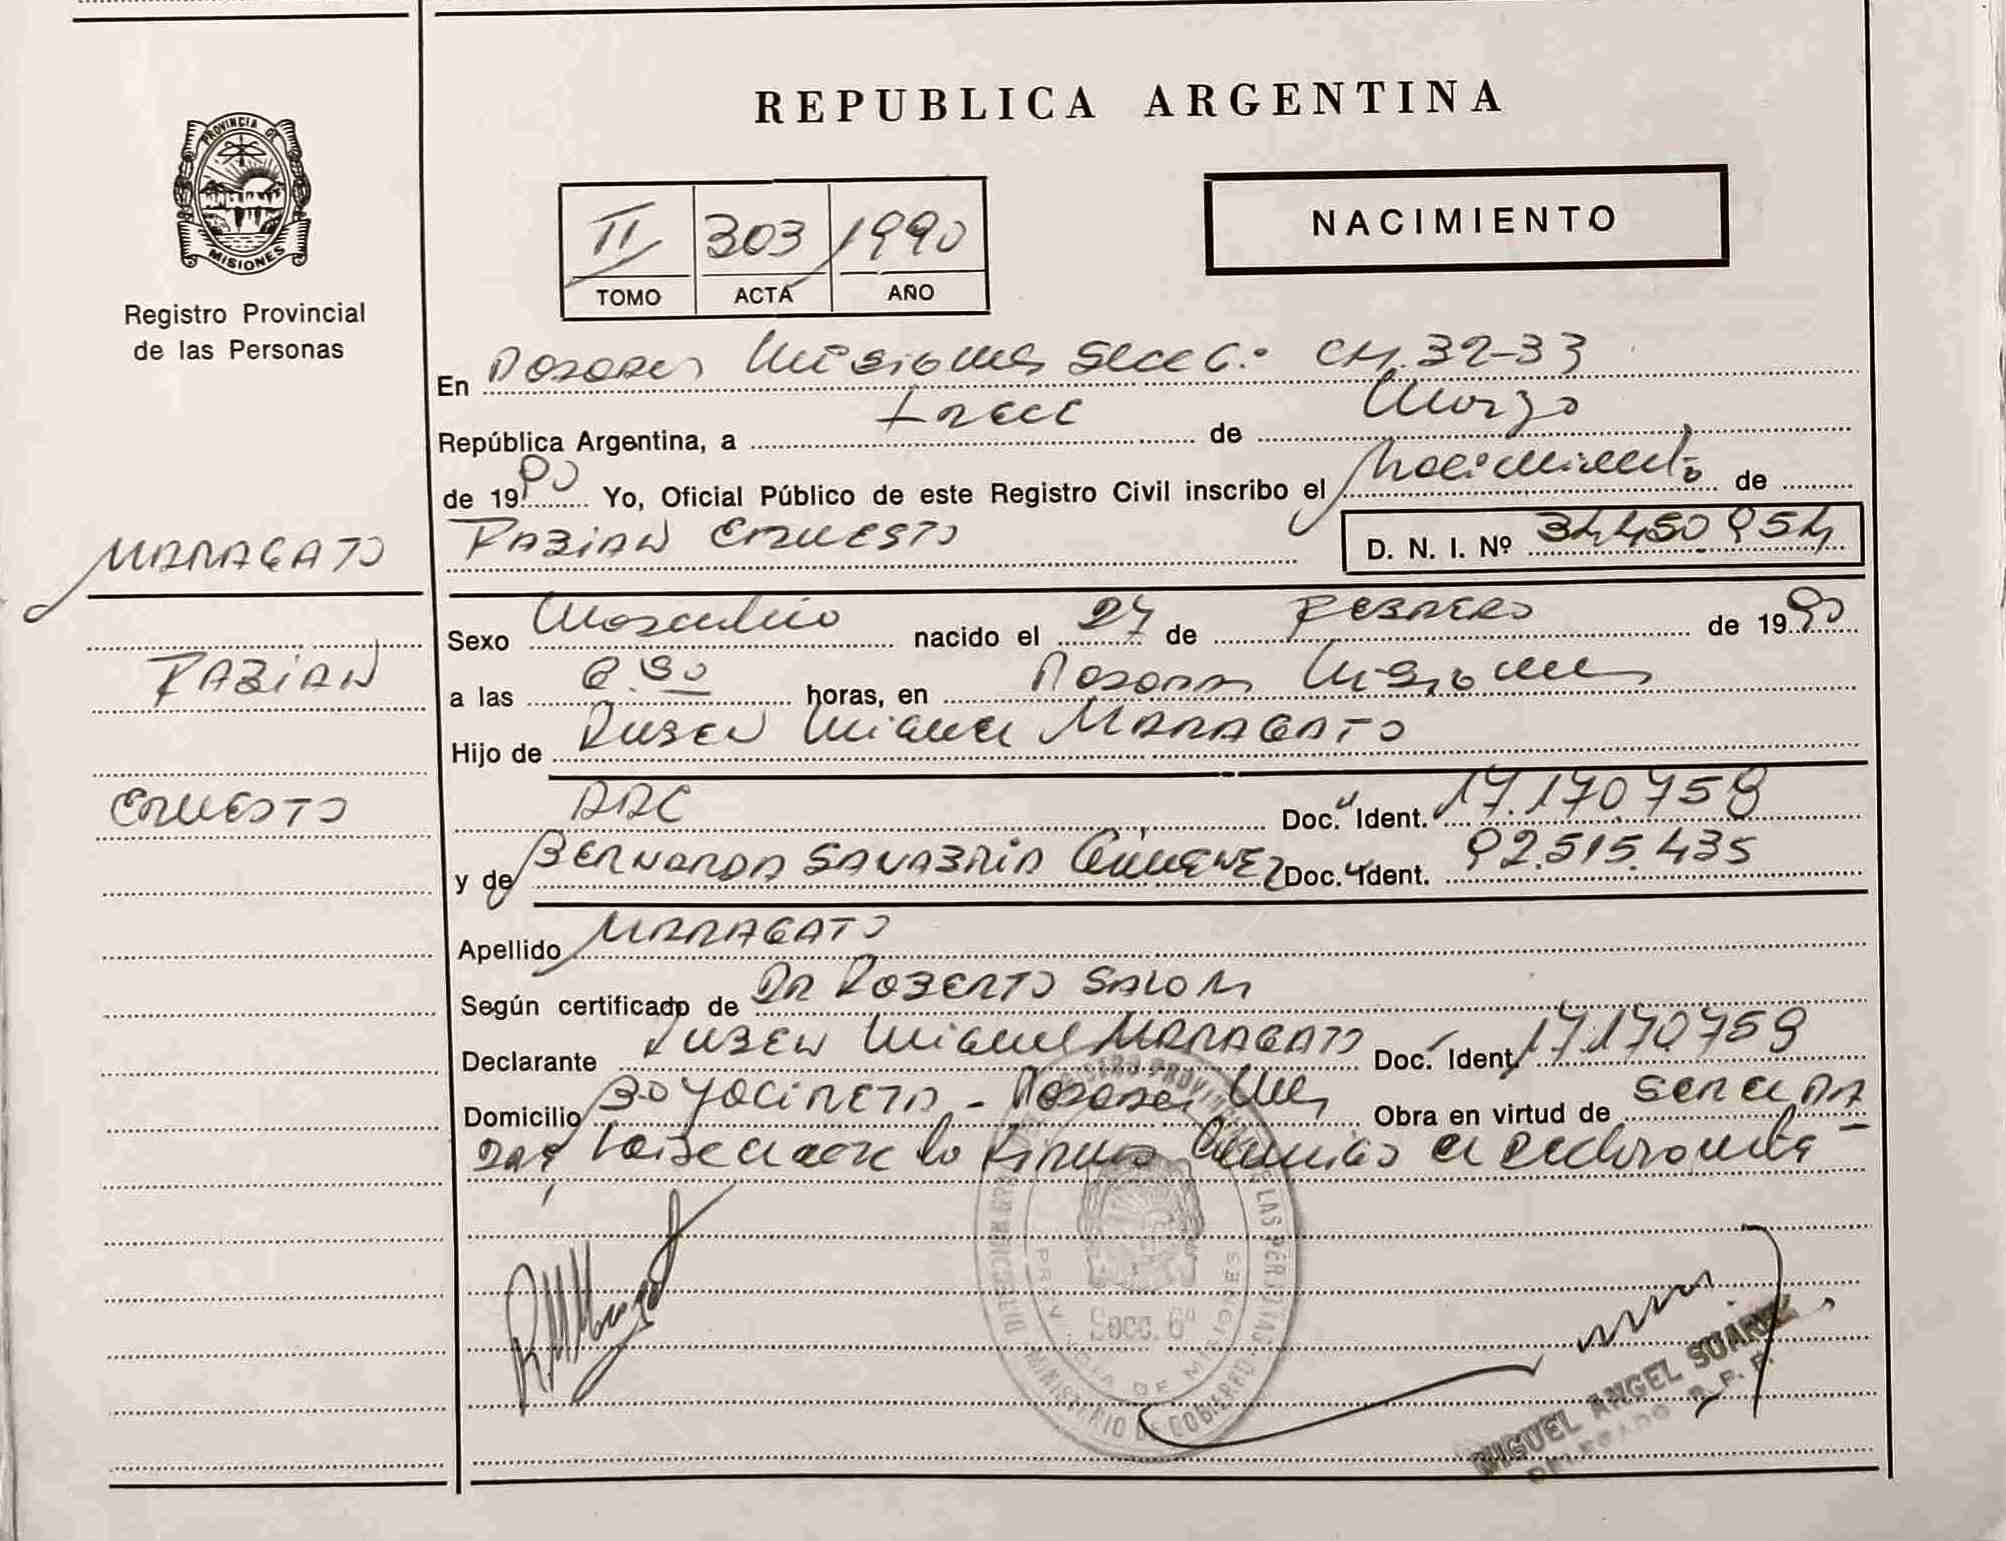 REPUBLICA ARGENTINA
PROVINCIA DE
MISIONES
Registro Provincial
de las Personas
II 303 1990
TOMO ACTA AÑO
NACIMIENTO
En Posadas Misiones Secc 6.
República Argentina, a trece de Marzo
de 1990 Yo, Oficial Público de este Registro Civil inscribo el Nacimiento de
FABIAN ERNESTO D. N. I. Nº 34.450.954
MARAGATO
FABIAN
ERNESTO
Sexo Masculino nacido el 27 de FEBRERO de 1990
a las horas, en Posadas Misiones
Hijo de RUBEN Miguel MARAGATO
ARG Doc. Ident. 17.170.759
y de BERNARDA SANABRIA Doc. Ident. 92.515.435
Apellido MARAGATO
Según certificado de DR ROBERTO SALOM
Declarante RUBEN Miguel MARAGATO Doc. Ident. 17.170.759
Domicilio Posadas Obra en virtud de
lo firma el declarante
DIRECCION REGISTRO PROVINCIAL DE LAS PERSONAS
MINISTERIO DE GOBIERNO
PROVINCIA DE MISIONES
Secc. 6ª
MIGUEL ANGEL SUAREZ